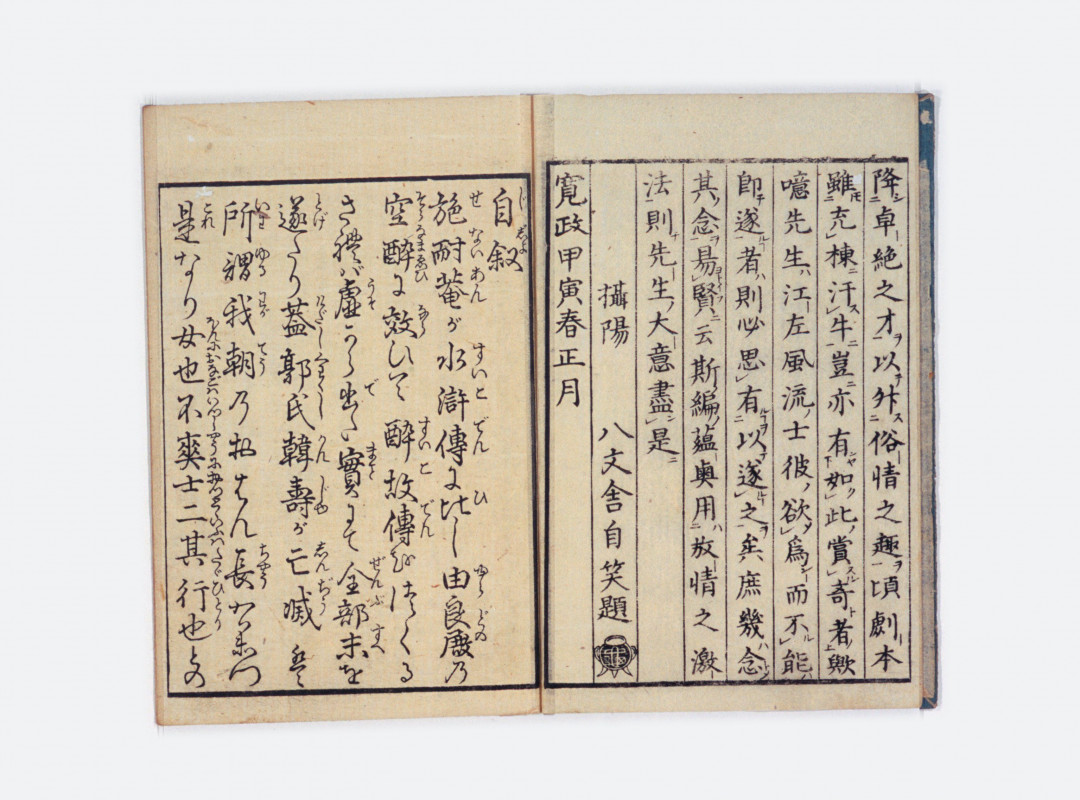 降卓絶之才以外俗情之趣頃劇本
雖充棟汗牛豈亦有如此賞奇者歟
噫先生江左風流士彼欲為而不能
即遂者則必思有以遂之矣庶幾念
其念易賢云斯編蘊奥用放情之激
法則先生大意盡是
攝陽 八文舎自笑題
寛政甲寅春正月
自叙
施耐菴が水滸傳に比し由良殿乃
空酔に效ひて酔故傳
虚 出 實 全部末を
遂たり蓋郭氏韓壽が亡滅
所謂我朝乃 長
是なり女也不爽士二其行也